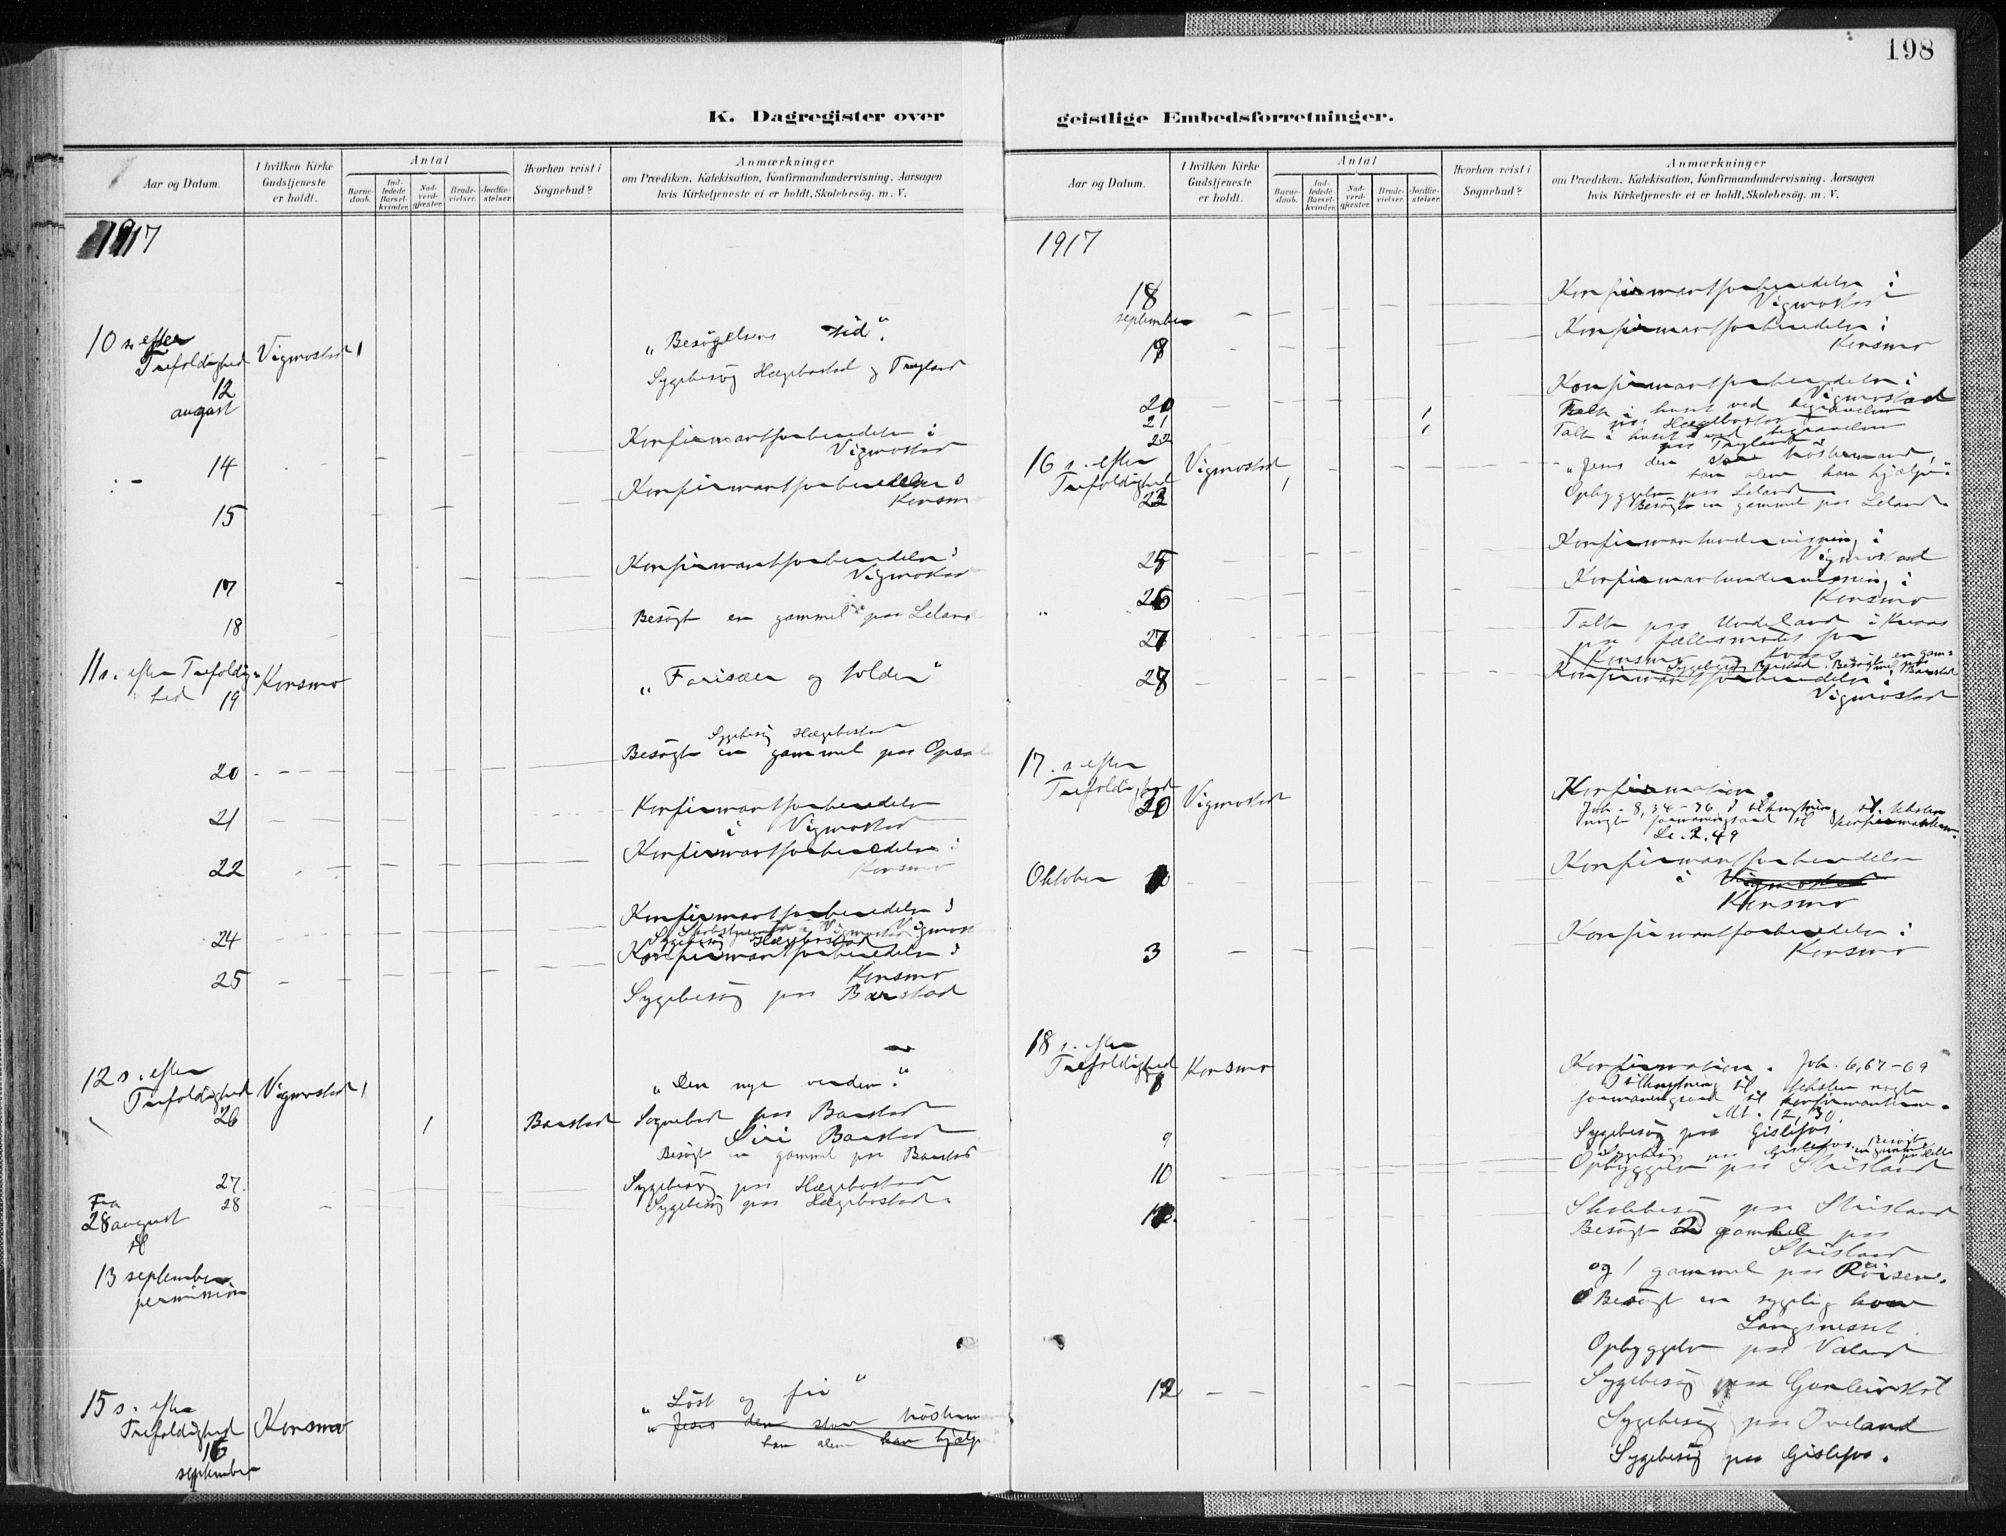 198
K. Dagregister over
geistlige Embedsforretninger.
Aar og Datum.
I hvilken Kirke Gudstjeneste er holdt.
Antal
Barne-daab.
Ind-ledede Barsel-kvinder.
Nad-verd-gjester.
Brude-vielser.
Jordfæ-stelser.
Hvorhen reist i Sognebud?
Anmærkninger
om Prædiken, Katekisation, Konfirmandundervisning, Aarsagen
hvis Kirketjeneste ei er holdt, Skolebesøg. m. V.
1917
10 s. efter
Trefoldighed Vigmostad 1 „Besøgelsens tid“.
12 Sygebesøg Hægebostad og Trygland
august
14 Konfirmantforberedelse i
Vigmostad
15 Konfirmantforberedelse i
Konsmo
17 Konfirmantforberedelse i
Vigmostad
18 Besøgt en gammel paa Leland
11 s. efter Trefoldig-
hed 19 Konsmo „Farisæer og tolder“
Sygebesøg Hægebostad
20 Besøgt en gammel paa Opsal
21 Konfirmantforberedelse
i Vigmostad
22 Konfirmantforberedelse i
Konsmo
24 Konfirmantforberedelse i
Vigmost
Sygebesøg Hægebostad
25 Konfirmantforberedelse i
Konsmo
Sygebesøg paa Barstad
12 s. efter
Trefoldighed Vigmostad 1 „Den nye verden.“
26 1 Baastad Sognebud paa Baastad
Siri Baastad
Besøgt en gammel paa Baastad
27. Sygebesøg paa Hægebostad
28 Sygebesøg paa Hægebostad.
Fra
28 august
til
13 september
permission
15 s. efter
Trefoldighed Konsmo „Løst og fri“
16 „Jesus den store
han alene kan hjælpe
september
Aar og Datum.
I hvilken Kirke Gudstjeneste er holdt.
Antal
Barne-daab.
Ind-ledede Barsel-kvinder.
Nad-verd-gjester.
Brude-vielser.
Jordfæ-stelser.
Hvorhen reist i Sognebud?
Anmærkninger
om Prædiken, Katekisation, Konfirmandundervisning, Aarsagen
hvis Kirketjeneste ei er holdt, Skolebesøg. m. V.
1917
18 Konfirmantforberedelse i
september Vigmostad
19 Konfirmantforberedelse i
Konsmo
20 Konfirmantforberedelse i
Vigmostad
21 1 Talt i huset ved begravelse
paa Hægebostad
22 1 Talt i huset ved begravelse
paa Trygland
16 s. efter
Trefoldighed Vigmostad 1 „Jesus den store trøstermand,
23 han alene kan hjælpe“
Opbyggelse paa Leland
Besøgt en gammel paa Leland.
25 Konfirmantundervisning i
Vigmostad
26 Konfirmantundervisning i
Konsmo
27 Talt paa Undeland i Kvaas
paa fællesmødet for
Konsmo Kvaas
28 Konfirmantforberedelse i
Vigmostad
17. s. efter
Trefoldighed Vigmostad Konfirmation.
Joh. 8,34-36
Lc. 2,49
Oktober Konfirmantforberedelse
i Vigmostad
Konsmo
3 Konfirmantforberedelse i
Konsmo
18 s. efter
Trefoldighed Konsmo Konfirmation. Joh. 6,67-69
I tilknytning til teksten nogle
formaningsord til konfirmanterne.
Mt. 12,30
9 Sygebesøg paa Gislefos
10 Opbyggelse paa Strisland
Skolebesøg paa Strisland
Besøgt 2 gamle paa
Strisland
og 1 gammel paa Röisen.
Besøgt en sygelig kone
Langnesset
Opbyggelse paa Valand
12 Sygebesøg paa
Sygebesøg paa Iveland
Sygebesøg paa Gislefos.